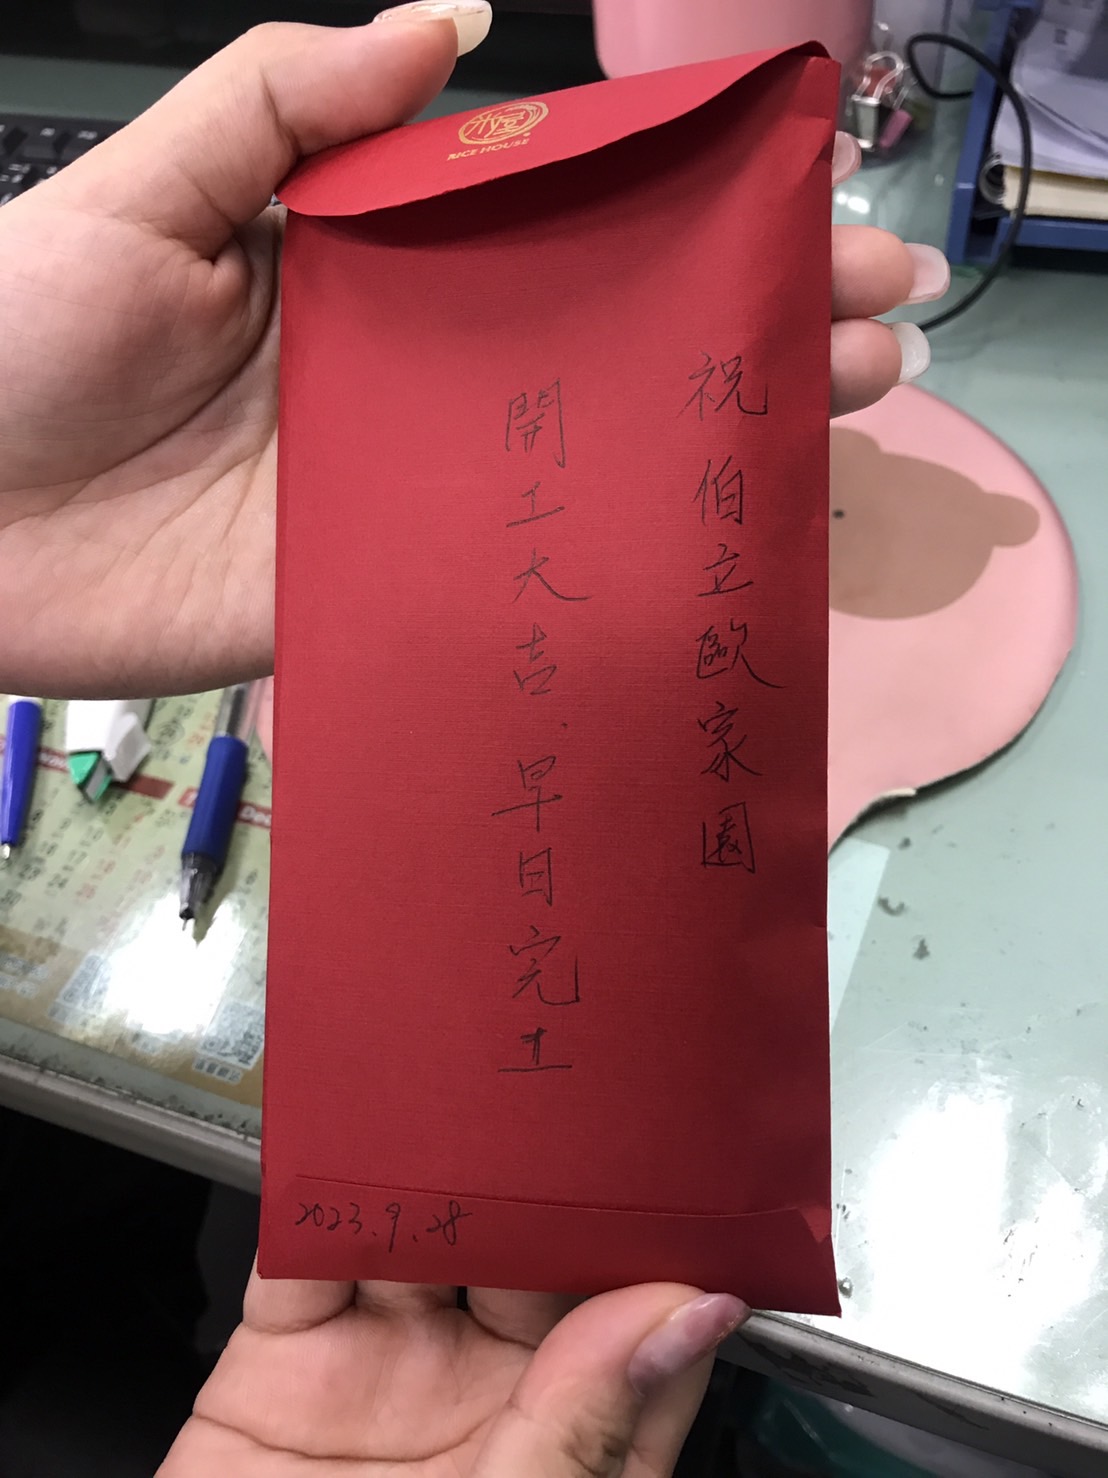 米屋
RICE HOUSE
祝伯立歐家園
開工大吉、早日完工
2023.9.28
Dec